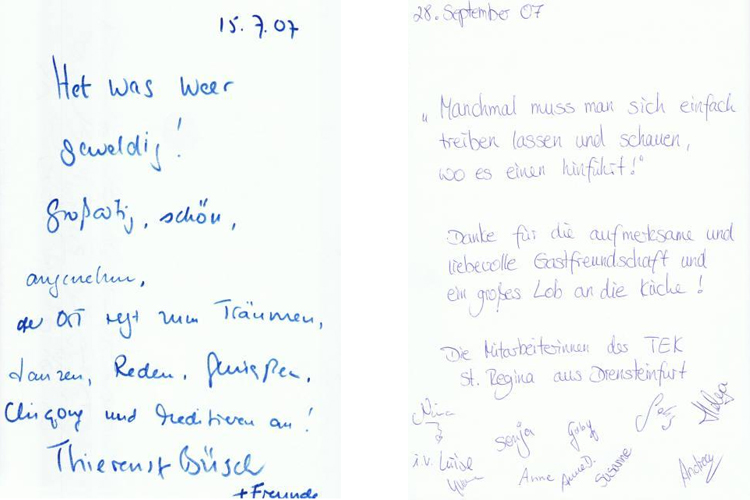 15.7.07
Het was weer
geweldig!
Großartig, schön,
angenehm,
der Ort regt zum Träumen,
Tanzen, Reden, Genießen,
und Meditieren an!
Thierenst Büsch
+ Freunde
28. September 07
„Manchmal muss man sich einfach
treiben lassen und schauen,
wo es einen hinführt!“
Danke für die aufmerksame und
liebevolle Gastfreundschaft und
ein großes Lob an die Küche!
Die Mitarbeiterinnen des TEK
St. Regina aus Drensteinfurt
Nina
Sonja
Gaby
Helga
i.V. Luise
Anne
Anne D.
Susanne
Andrea